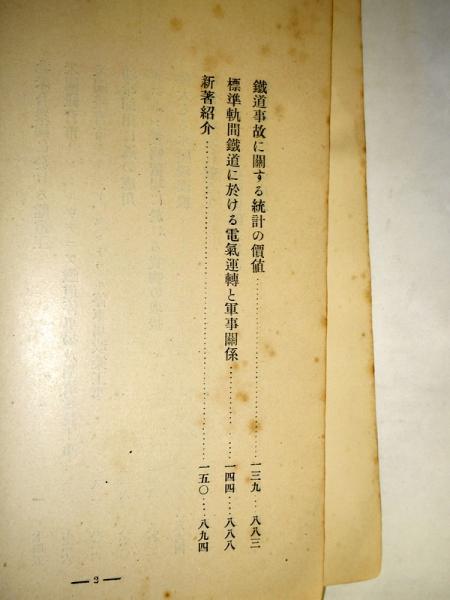 鐵道事故に關する統計の價値……………………一三九‥八八三
標準軌間鐵道に於ける電氣運轉と軍事關係…………一四四‥八八八
新著紹介………………………………一五〇‥八九四
—2—